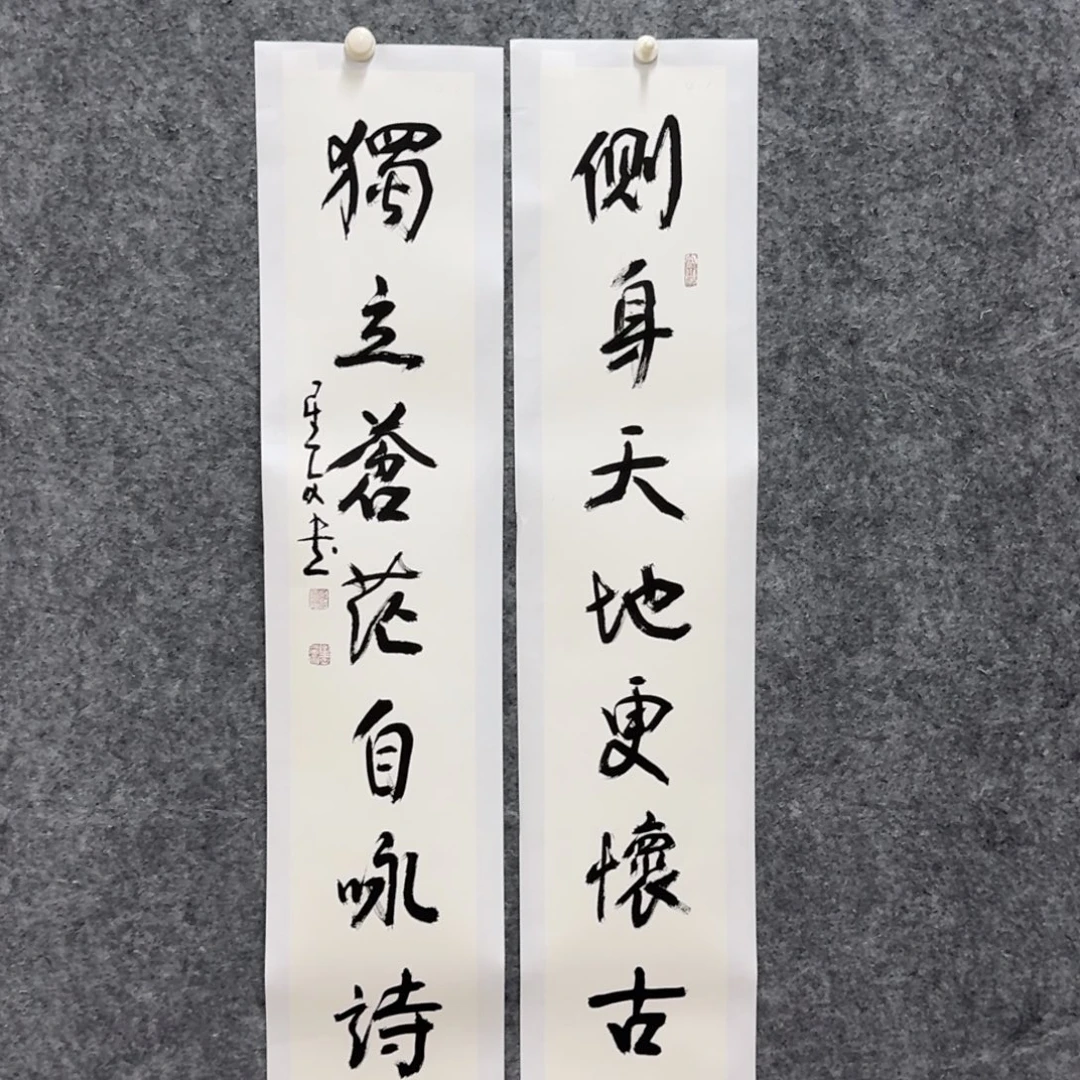 側身天地更懷古
獨立蒼茫自咏詩